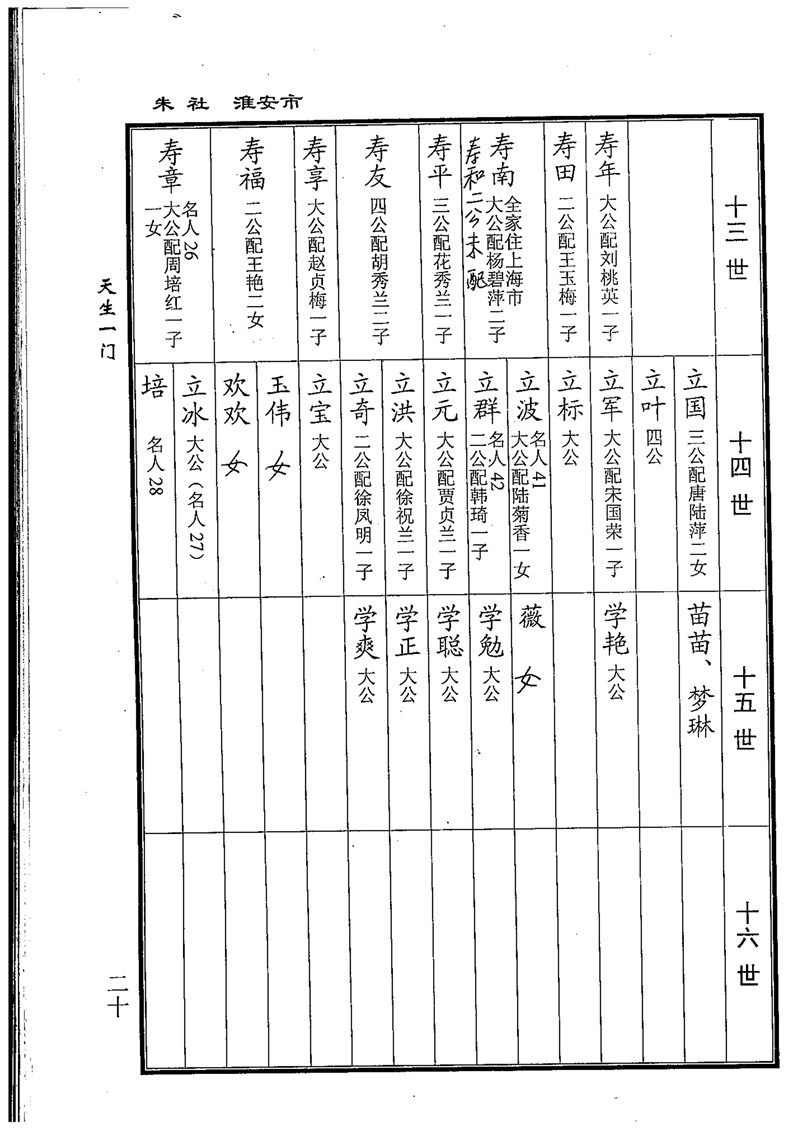 朱社 淮安市
十三世
寿年 大公配刘桃英一子
寿田 二公配王玉梅一子
寿南 全家住上海市
大公配杨碧萍二子
寿和二公未配
寿平 三公配花秀兰一子
寿友 四公配胡秀兰二子
寿享 大公配赵贞梅一子
寿福 二公配王艳二女
寿章 名人26
大公配周培红一子
一女
十四世
立国 三公配唐陆萍二女
立叶 四公
立军 大公配宋国荣一子
立标 大公
立波 名人41
大公配陆菊香一女
立群 名人42
二公配韩琦一子
立元 大公配贾贞兰一子
立洪 大公配徐祝兰一子
立奇 二公配徐凤明一子
立宝 大公
玉伟 女
欢欢 女
立冰 大公（名人27）
培 名人28
十五世
苗苗、梦琳
学艳 大公
薇 女
学勉 大公
学聪 大公
学正 大公
学爽 大公
十六世
天生一门
二十